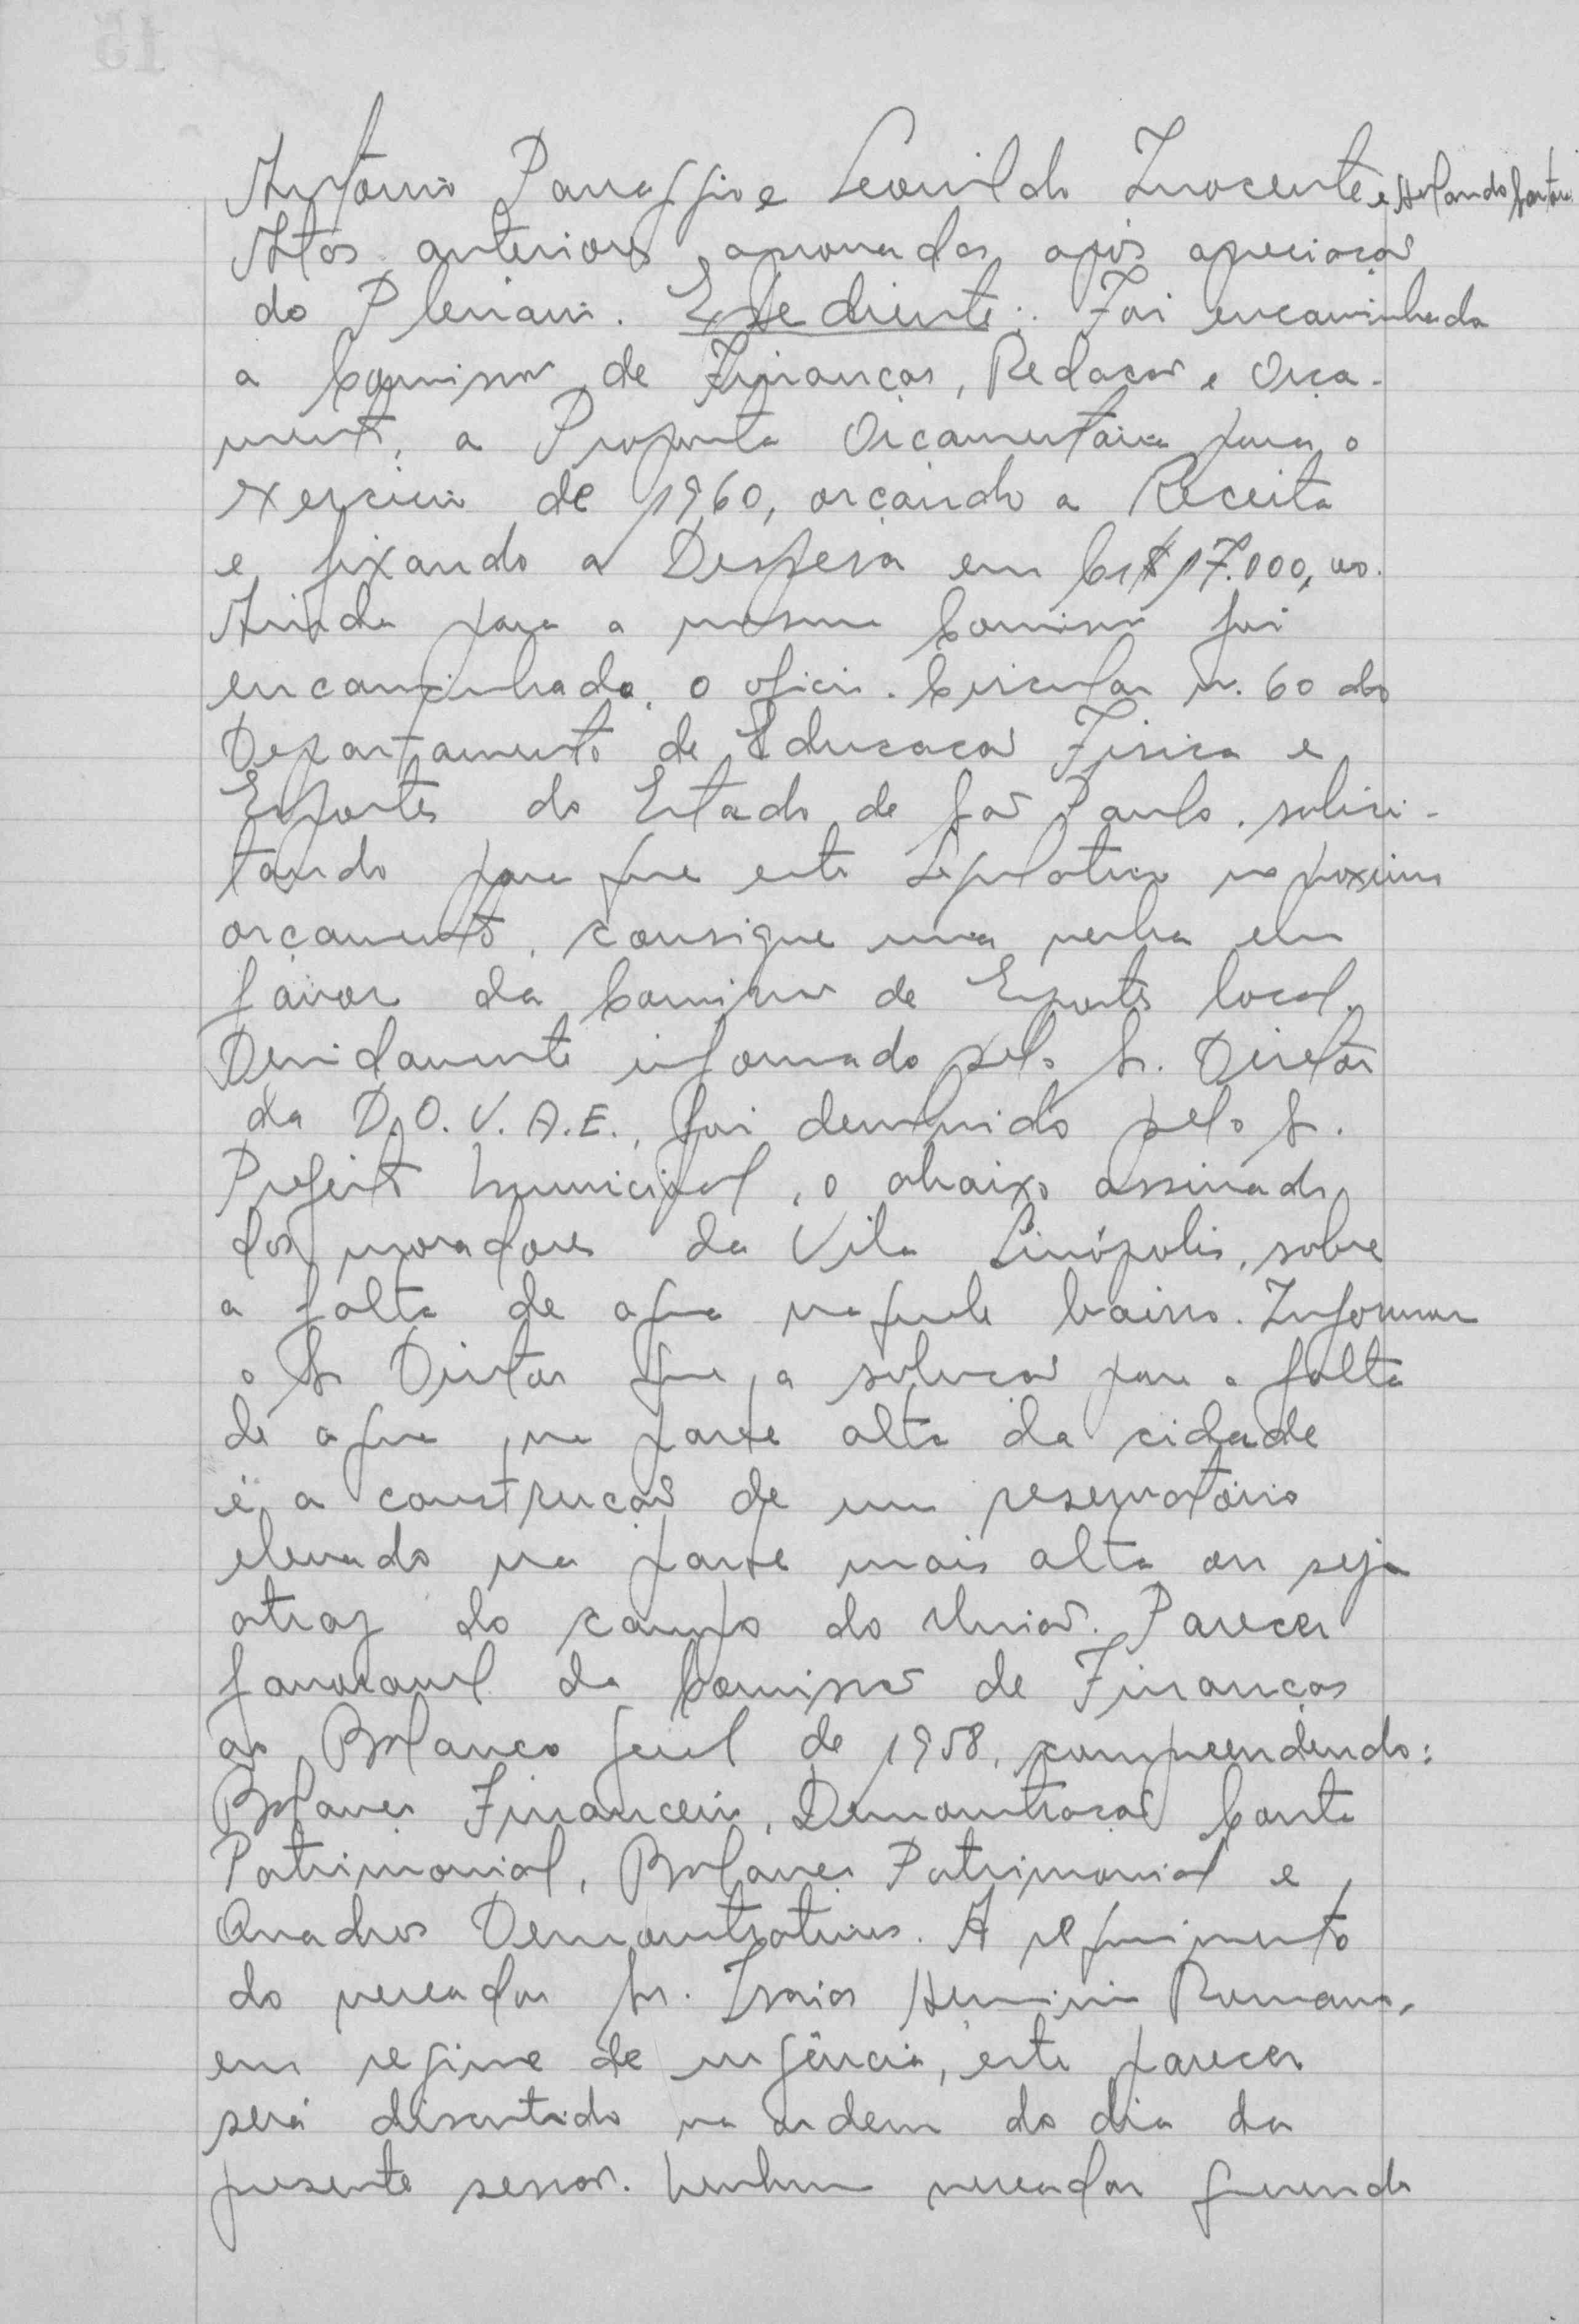 Antonio Panaggio e Leonildo Inocente e Arlando
Atas anteriores aprovadas após apreciação
do Plenario. Expediente: Foi encaminhada
a Comissão de Finanças, Redação e Orça-
mento, a Proposta Orçamentária para o
exercicio de 1960, orçando a Receita
e fixando a Despesa em Cr$ 17.000,00.
Ainda para a mesma Comissão foi
encaminhado, o oficio. Circular n. 60 do
Departamento de Educação Fisica e
Esportes do Estado de São Paulo, solici-
tando para que este Legislativo no proximo
orçamento, consigne uma verba em
favor da Comissão de Esportes local.
Devidamente informado pelo Sr. Diretor
da D.O.V.A.E., foi devolvido pelo Sr.
Prefeito Municipal, o abaixo assinado
dos moradores da Vila Linópolis, sobre
a falta de agua naquele bairro. Informou
o Sr Diretor que, a solução para a falta
de agua, na parte alta da cidade
é, a construção de um reservatório
elevado na parte mais alta ou seja
atraz do campo do União. Parecer
favoravel da Comissão de Finanças
ao Balanço geral de 1958, compreendendo:
Balanço Financeiro, Demonstração Conta
Patrimonial, Balanço Patrimonial e
Quadros Demonstrativos. A requerimento
do vereador Sr. Isaias Herminio Romano,
em regime de urgência, este parecer
será discutido na ordem do dia da
presente sessão. Nenhum vereador querendo